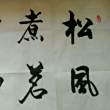 松風
煮茗